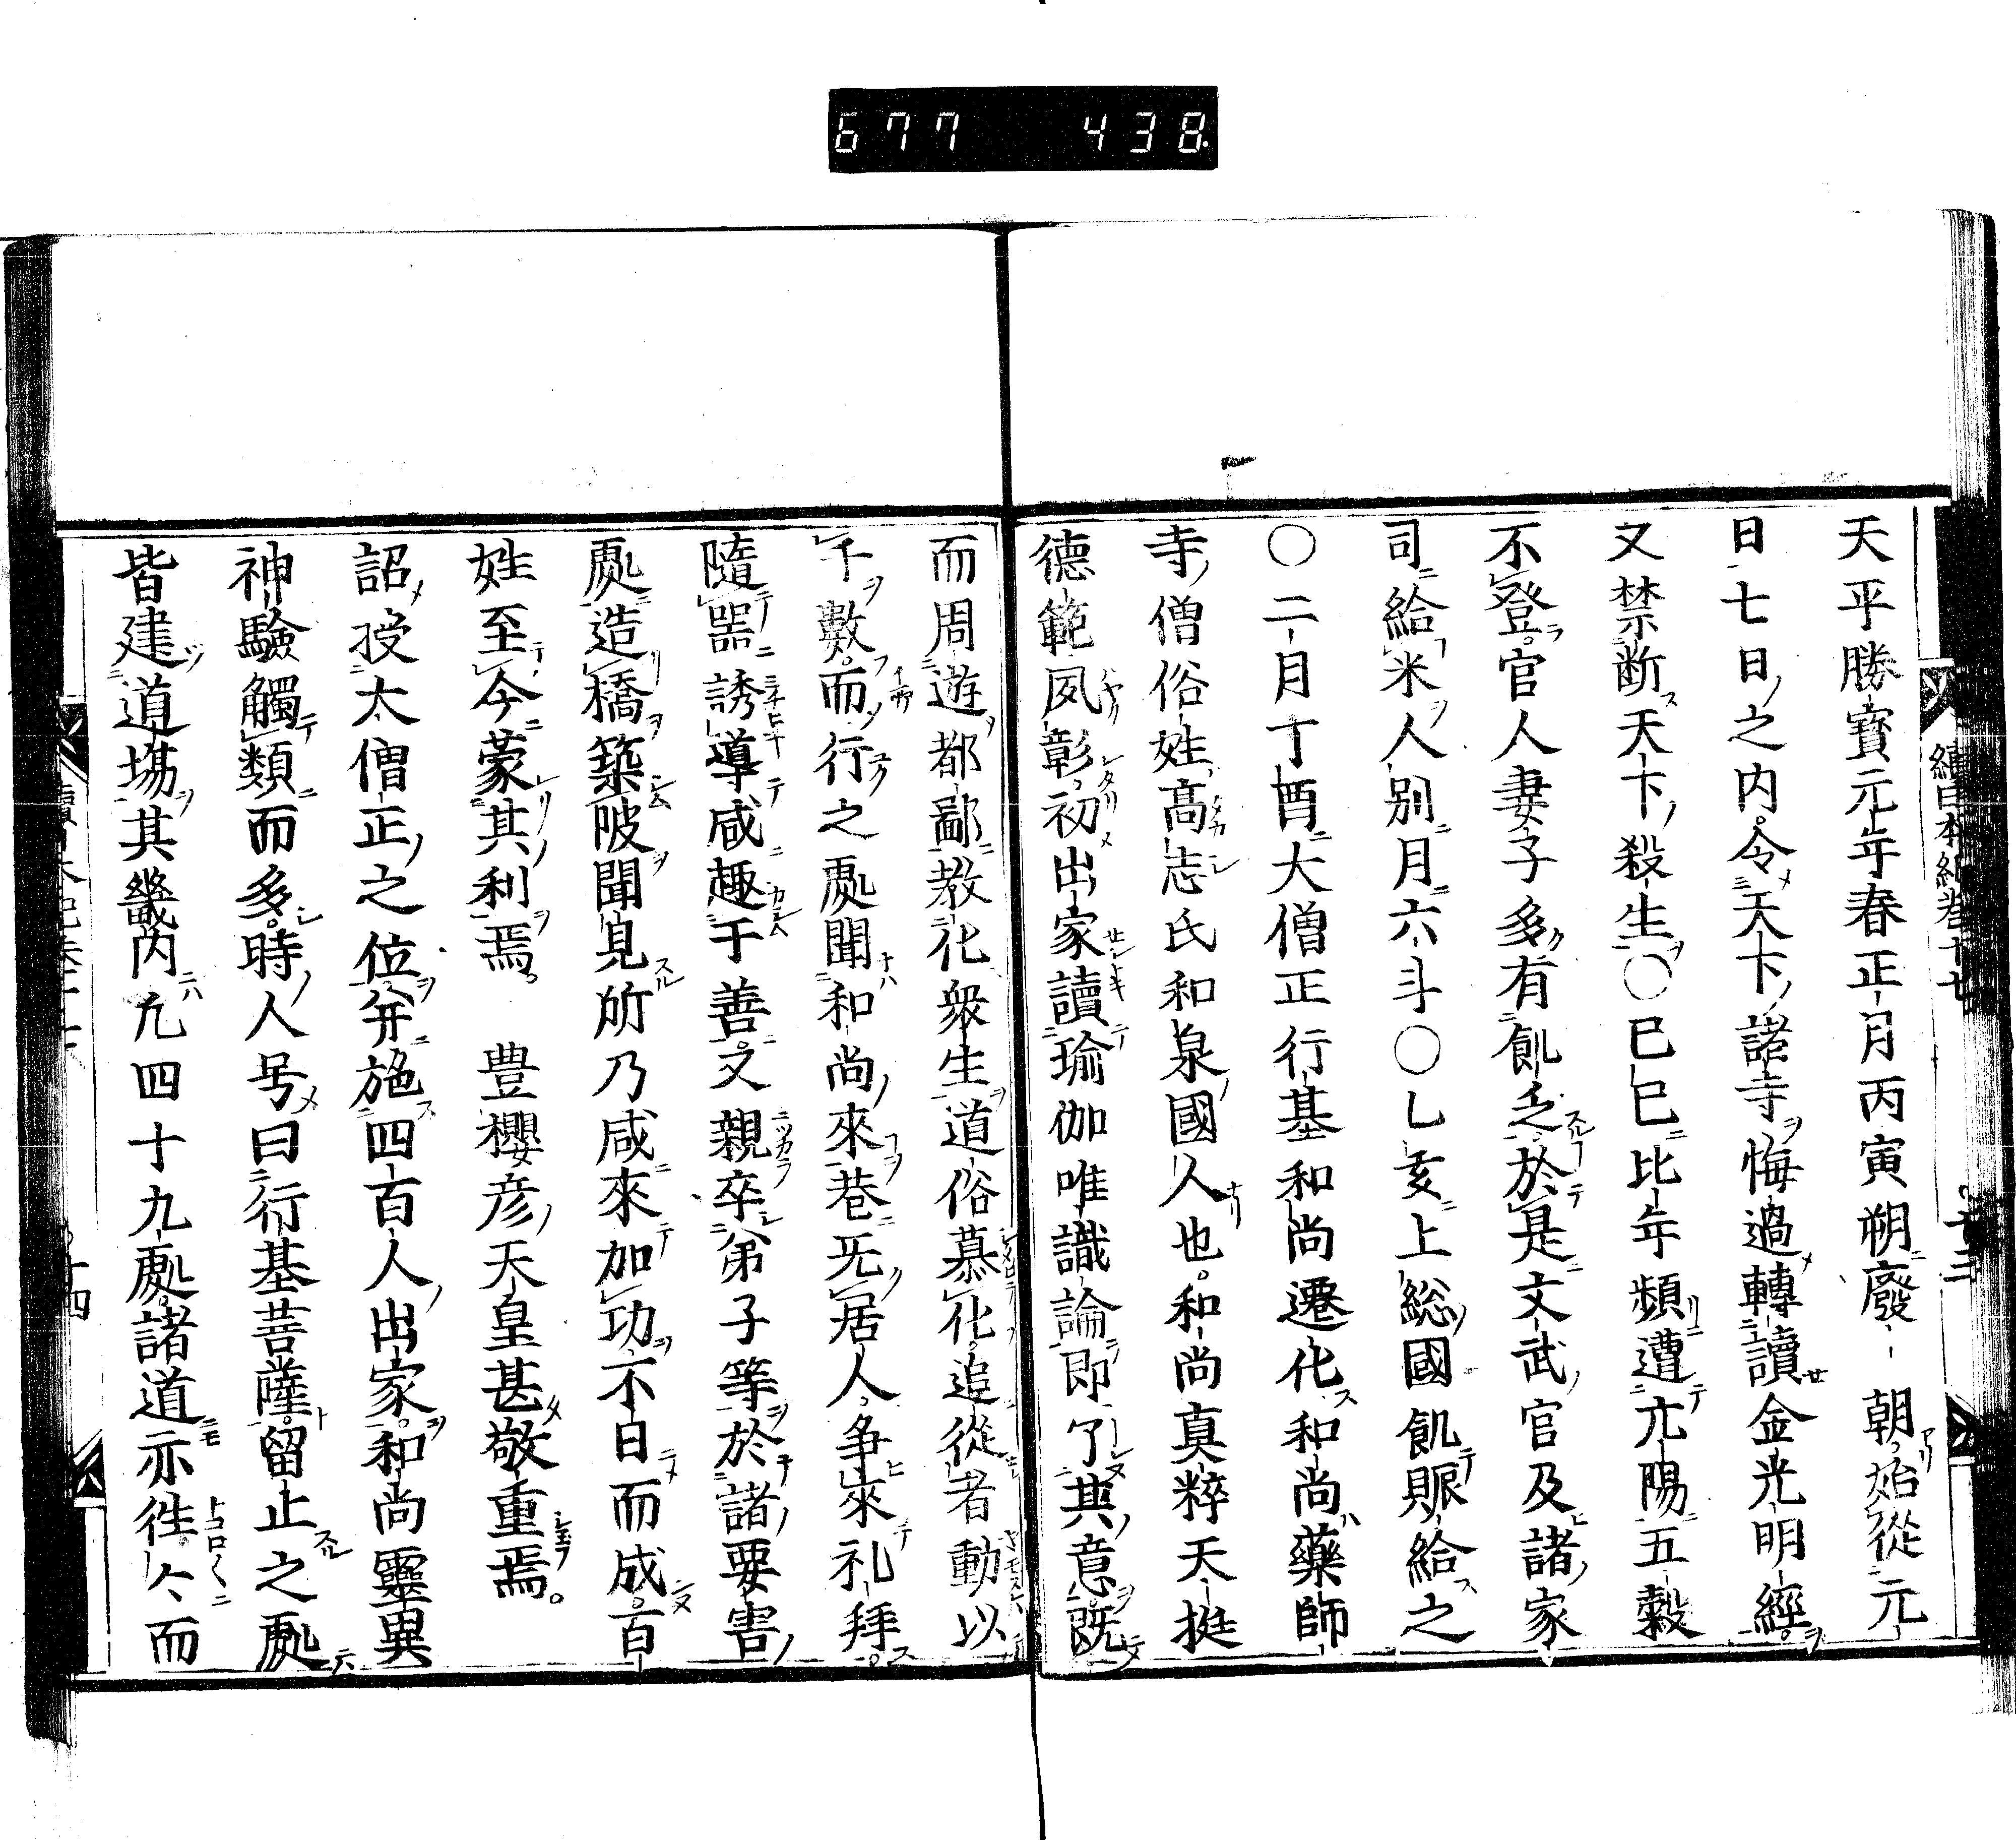 677 438
續日本紀卷十七 十三
天平勝寶元年春正月丙寅朔廢 朝始從元
日七日之内令天下諸寺悔過轉讀金光明經
又禁断天下殺生○己巳比年頻遭亢陽五穀
不登官人妻子多有飢乏於是文武官及諸家
司給米人別月六斗○乙亥上総國飢賑給之
○二月丁酉大僧正行基和尚遷化和尚藥師
寺僧俗姓高志氏和泉國人也和尚真粹天挺
德範夙彰初出家讀瑜伽唯識論即了其意既
而周遊都鄙教化衆生道俗慕化追從者動以
千數而行之處聞和尚來巷无居人争來礼拜
隨噐誘導咸趣于善又親卒弟子等於諸要害
處造橋築陂聞見所乃咸來加功不日而成百
姓至今蒙其利焉 豊櫻彦天皇甚敬重焉
詔授太僧正之位并施四百人出家和尚靈異
神驗觸類而多時人号曰行基菩薩留止之處
皆建道場其畿内凢四十九處諸道亦徃〻而
十四